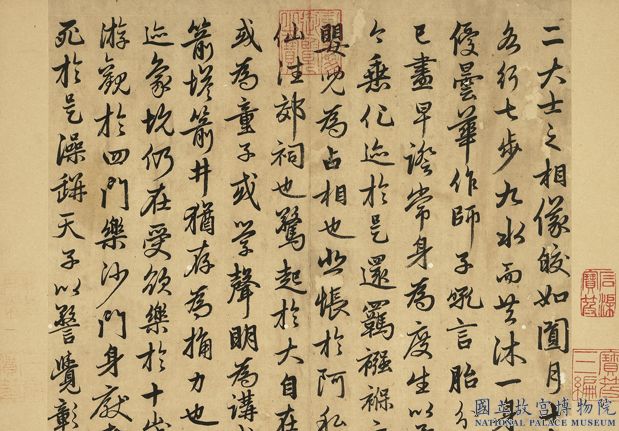 二大士之相儗皎如圓月
各行七步九水而共沐一
優曇華作師子吼言胎分
已盡早證常身為度生以
今乘化迹於是還羈襁褓
嬰兒為占相也悲悵於阿私
仙往郊祠也驚起於大自在
或為童子或學聲明為講
箭塔箭井猶存為捔力也
迹象坑仍在受欲樂於十
游觀於四門樂沙門身厭
死於是澡缾天子以警覺彰
寶笈三編
國立故宮博物院
NATIONAL PALACE MUSEUM